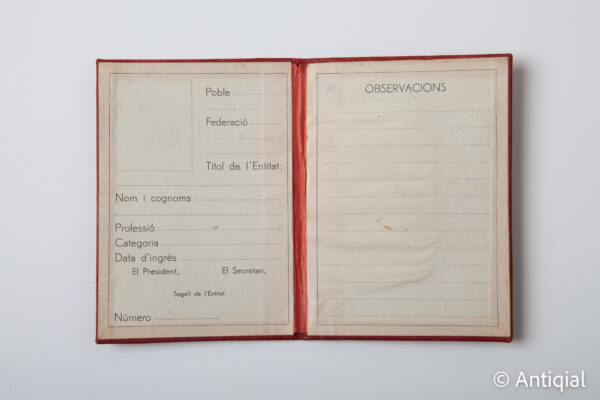 Poble
Federació
Títol de l'Entitat:
Nom i cognoms
Professió
Categoria
Data d'ingrés
El President, El Secretari,
Segell de l'Entitat
Número
OBSERVACIONS
© Antiqial